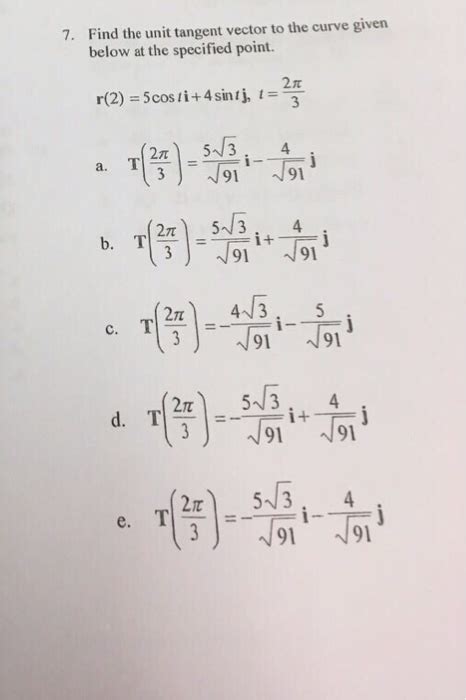 7. Find the unit tangent vector to the curve given
below at the specified point.
r(2) = 5cos t i + 4 sin t j, t = 2π/3
a. T(2π/3) = 5√3/√91 i − 4/√91 j
b. T(2π/3) = 5√3/√91 i + 4/√91 j
c. T(2π/3) = −4√3/√91 i − 5/√91 j
d. T(2π/3) = −5√3/√91 i + 4/√91 j
e. T(2π/3) = −5√3/√91 i − 4/√91 j